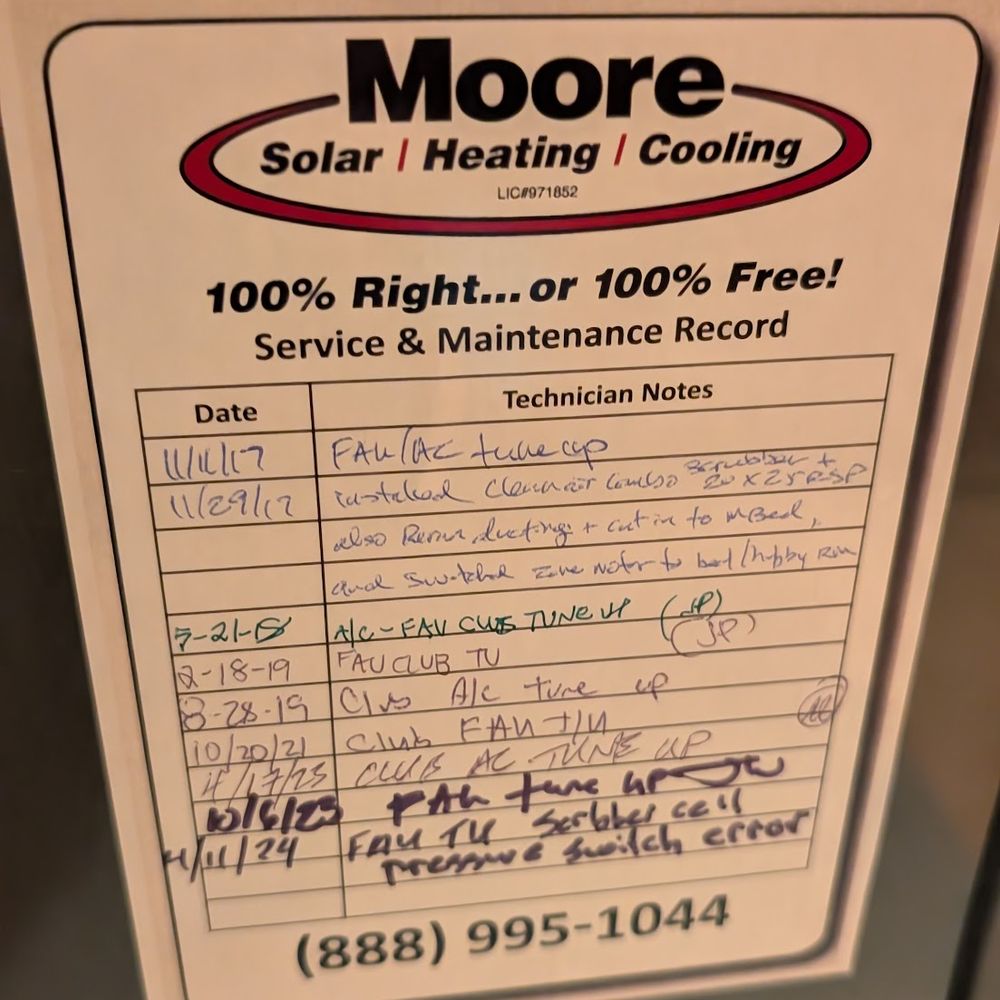 Moore
Solar | Heating | Cooling
LIC#971852
100% Right...or 100% Free!
Service & Maintenance Record
Date Technician Notes
11/11/17 FAU/AC tune up
11/29/17 installed Clean air combo Scrubber + 20 x 25
also ducting + cut in to MBed,
and Switched Zone motor to bed/hobby Rm
5-21-18 A/C-FAU CLUB TUNE UP (JP)
2-18-19 FAU CLUB TU (JP)
8-28-19 Club A/c tune up
10/20/21 Club FAU T/U
4/17/23 CLUB AC TUNE UP
10/6/23 FAU tune up
11/11/24 FAU TU Scrbber cell
pressure switch error
(888) 995-1044